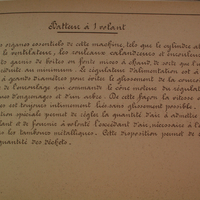 Batteur à 1 volant
organes essentiels de cette machine, tels que le cylindre
le ventilateur, les rouleaux calandreurs et
garnis de boîtes en fonte mises à chaud, de sorte que l'u
réduite au minimum. Le régulateur d'alimentation est à
à grands diamètres pour éviter le glissement de la courroie
de fourrelage qui commande le cône moteur du régulateur
d'engrenages et d'un arbre. De cette façon la vitesse
est toujours intimement liée sans glissement possible
spéciale permet de régler la quantité d'air à
et de fournir à volonté l'excédant d'air, nécessaire à
les tambours métalliques. Cette disposition permet de
quantité des déchets.